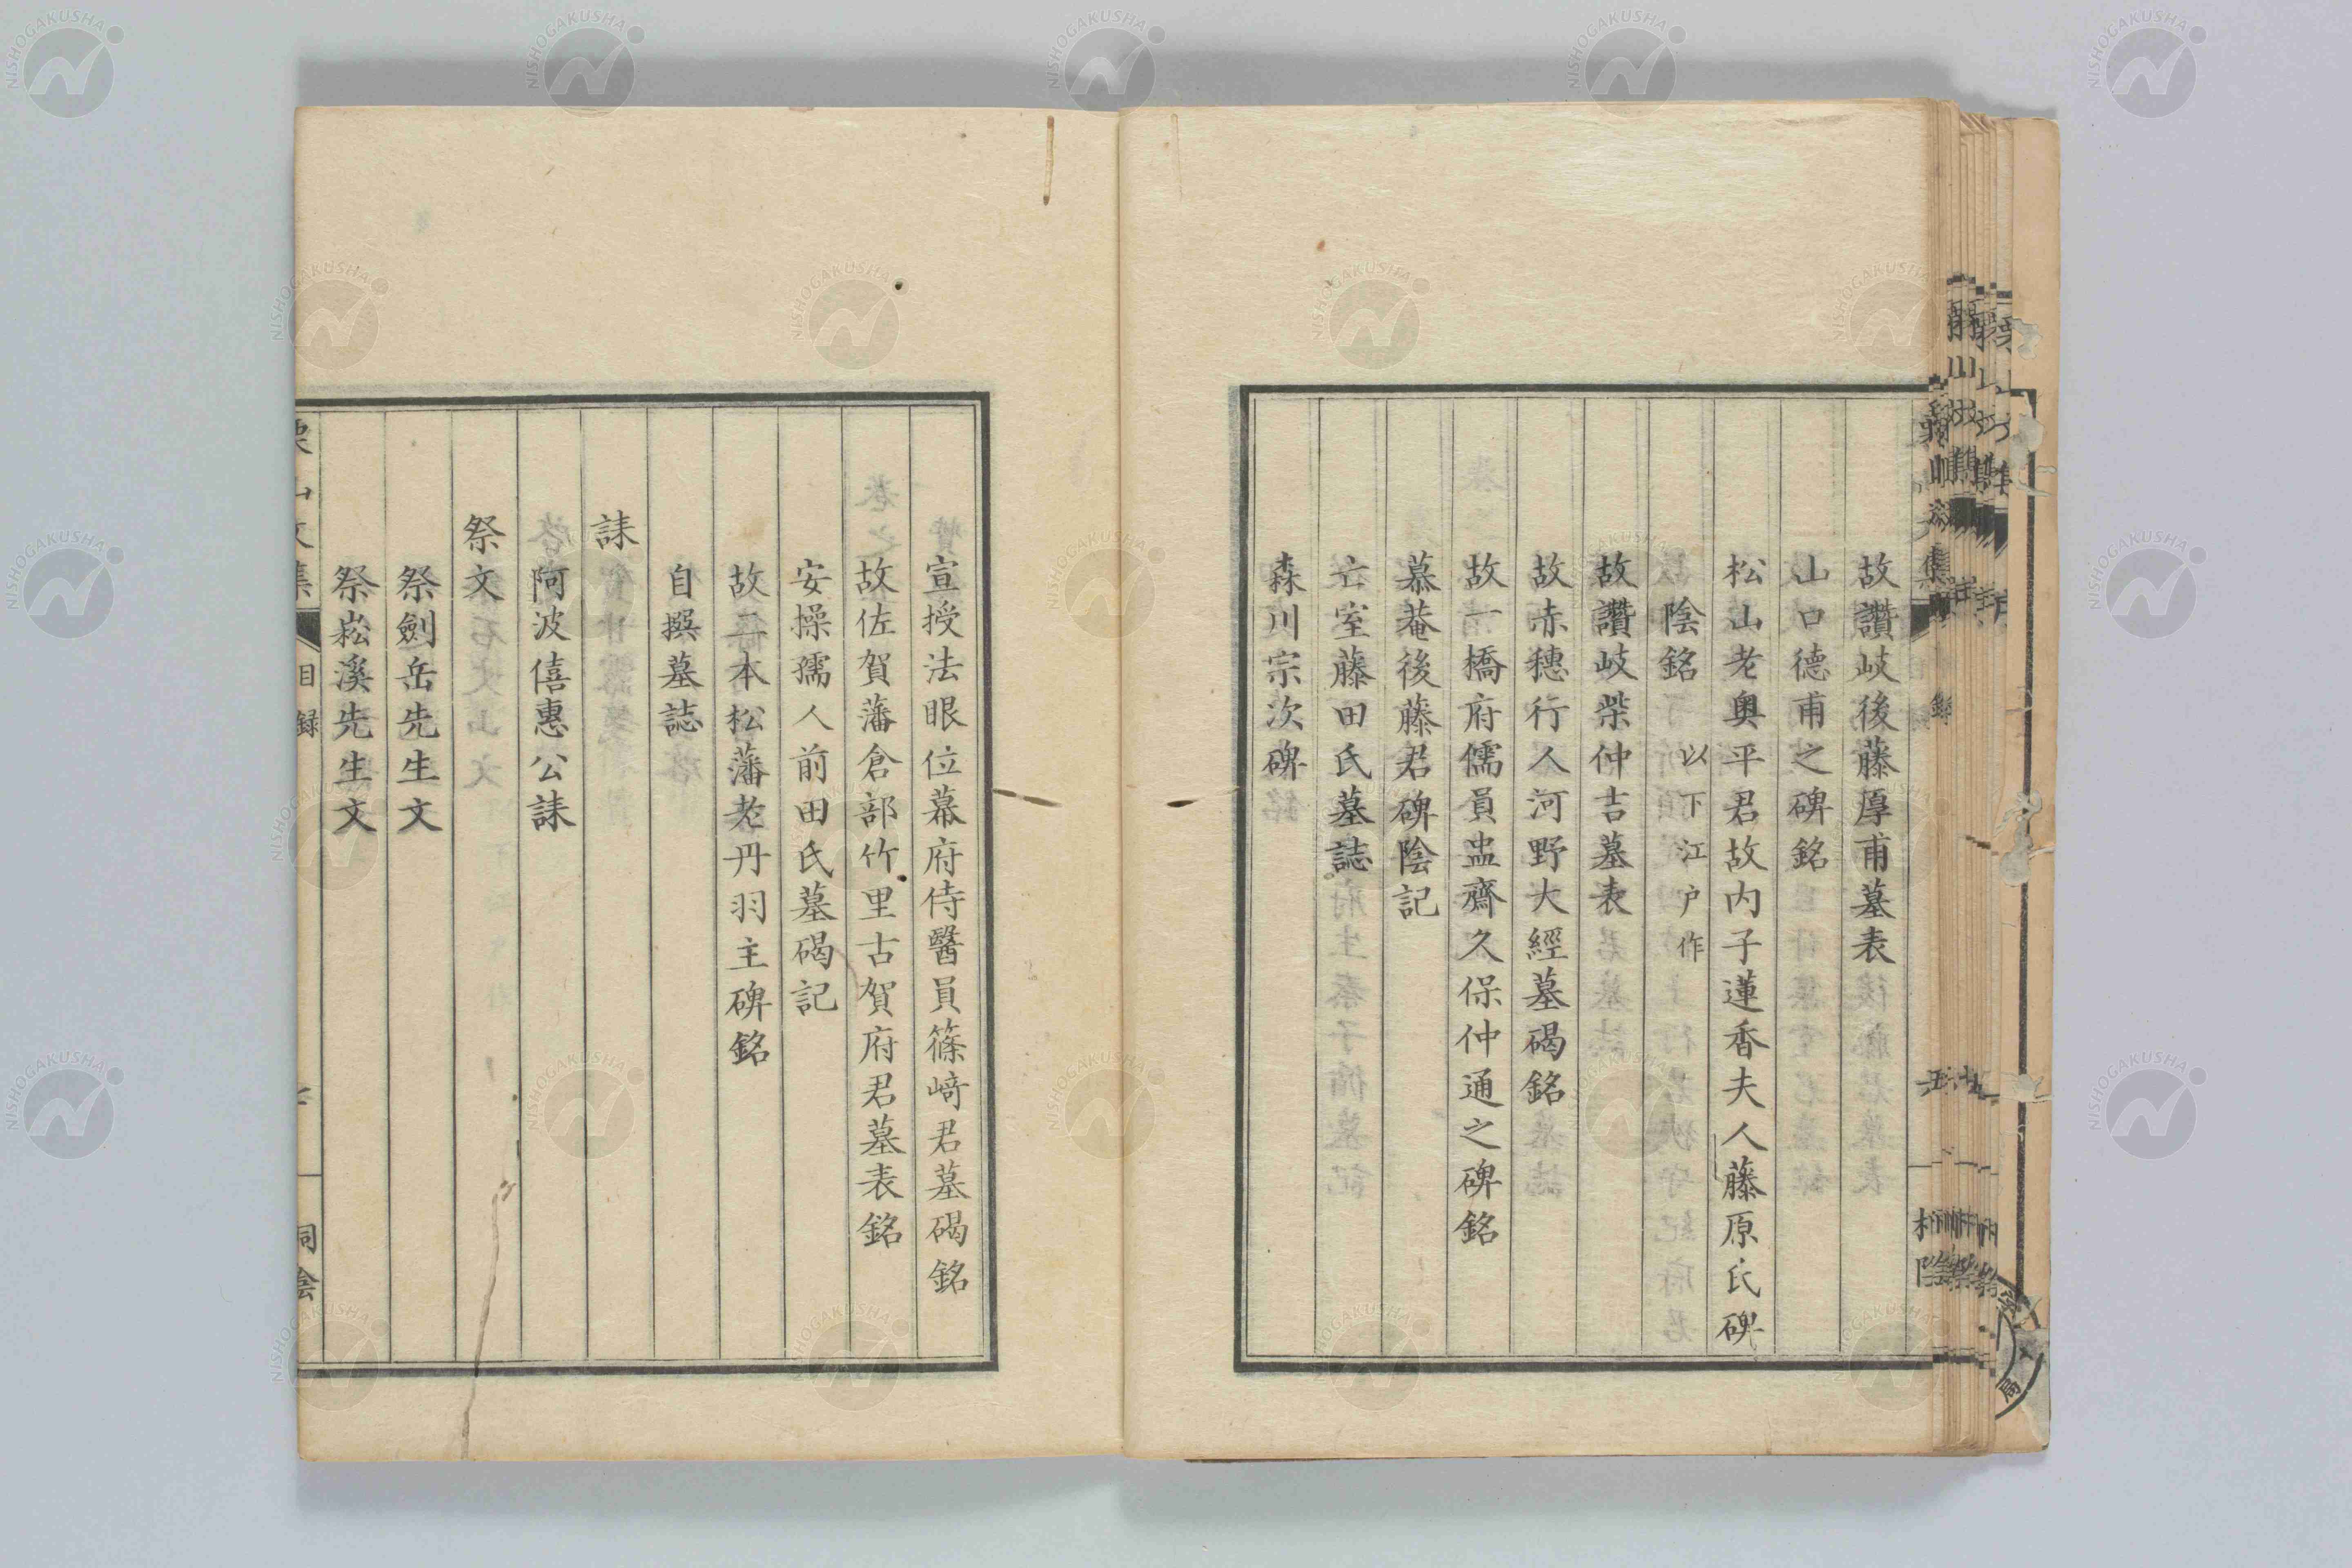 故讚岐後藤厚甫墓表
山口德甫之碑銘
松山老奥平君故内子蓮香夫人藤原氏碑
陰銘 以下江戸作
故讚岐柴仲吉墓表
故赤穗行人河野大經墓碣銘
故一橋府儒員盅齋久保仲通之碑銘
慕菴後藤君碑陰記
亡室藤田氏墓誌
森川宗次碑
宣授法眼位幕府侍醫員篠﨑君墓碣銘
故佐賀藩倉部竹里古賀府君墓表銘
安操孺人前田氏墓碣記
故二本松藩老丹羽主碑銘
自撰墓誌
誄
阿波僖惠公誄
祭文
祭劍岳先生文
祭崧溪先生文
栗山文集 目録
NISHOGAKUSHA